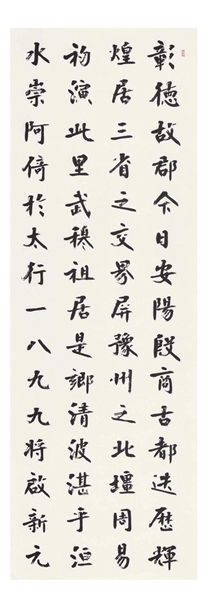 彰德故郡今日安陽殷商古都迭歷輝
煌居三省之交界屏豫州之北壃周易
初演此里武穆祖居是鄉清波湛乎洹
水崇阿倚於太行一八九九將啟新元